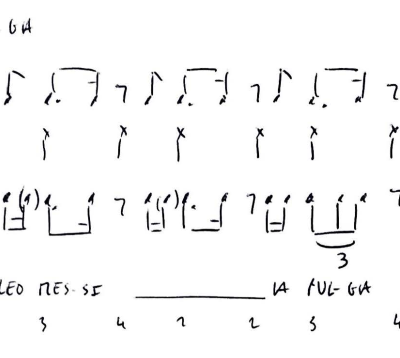 GA
3
LEO MES-SE IA FUL-GA
3 4 1 2 3 4